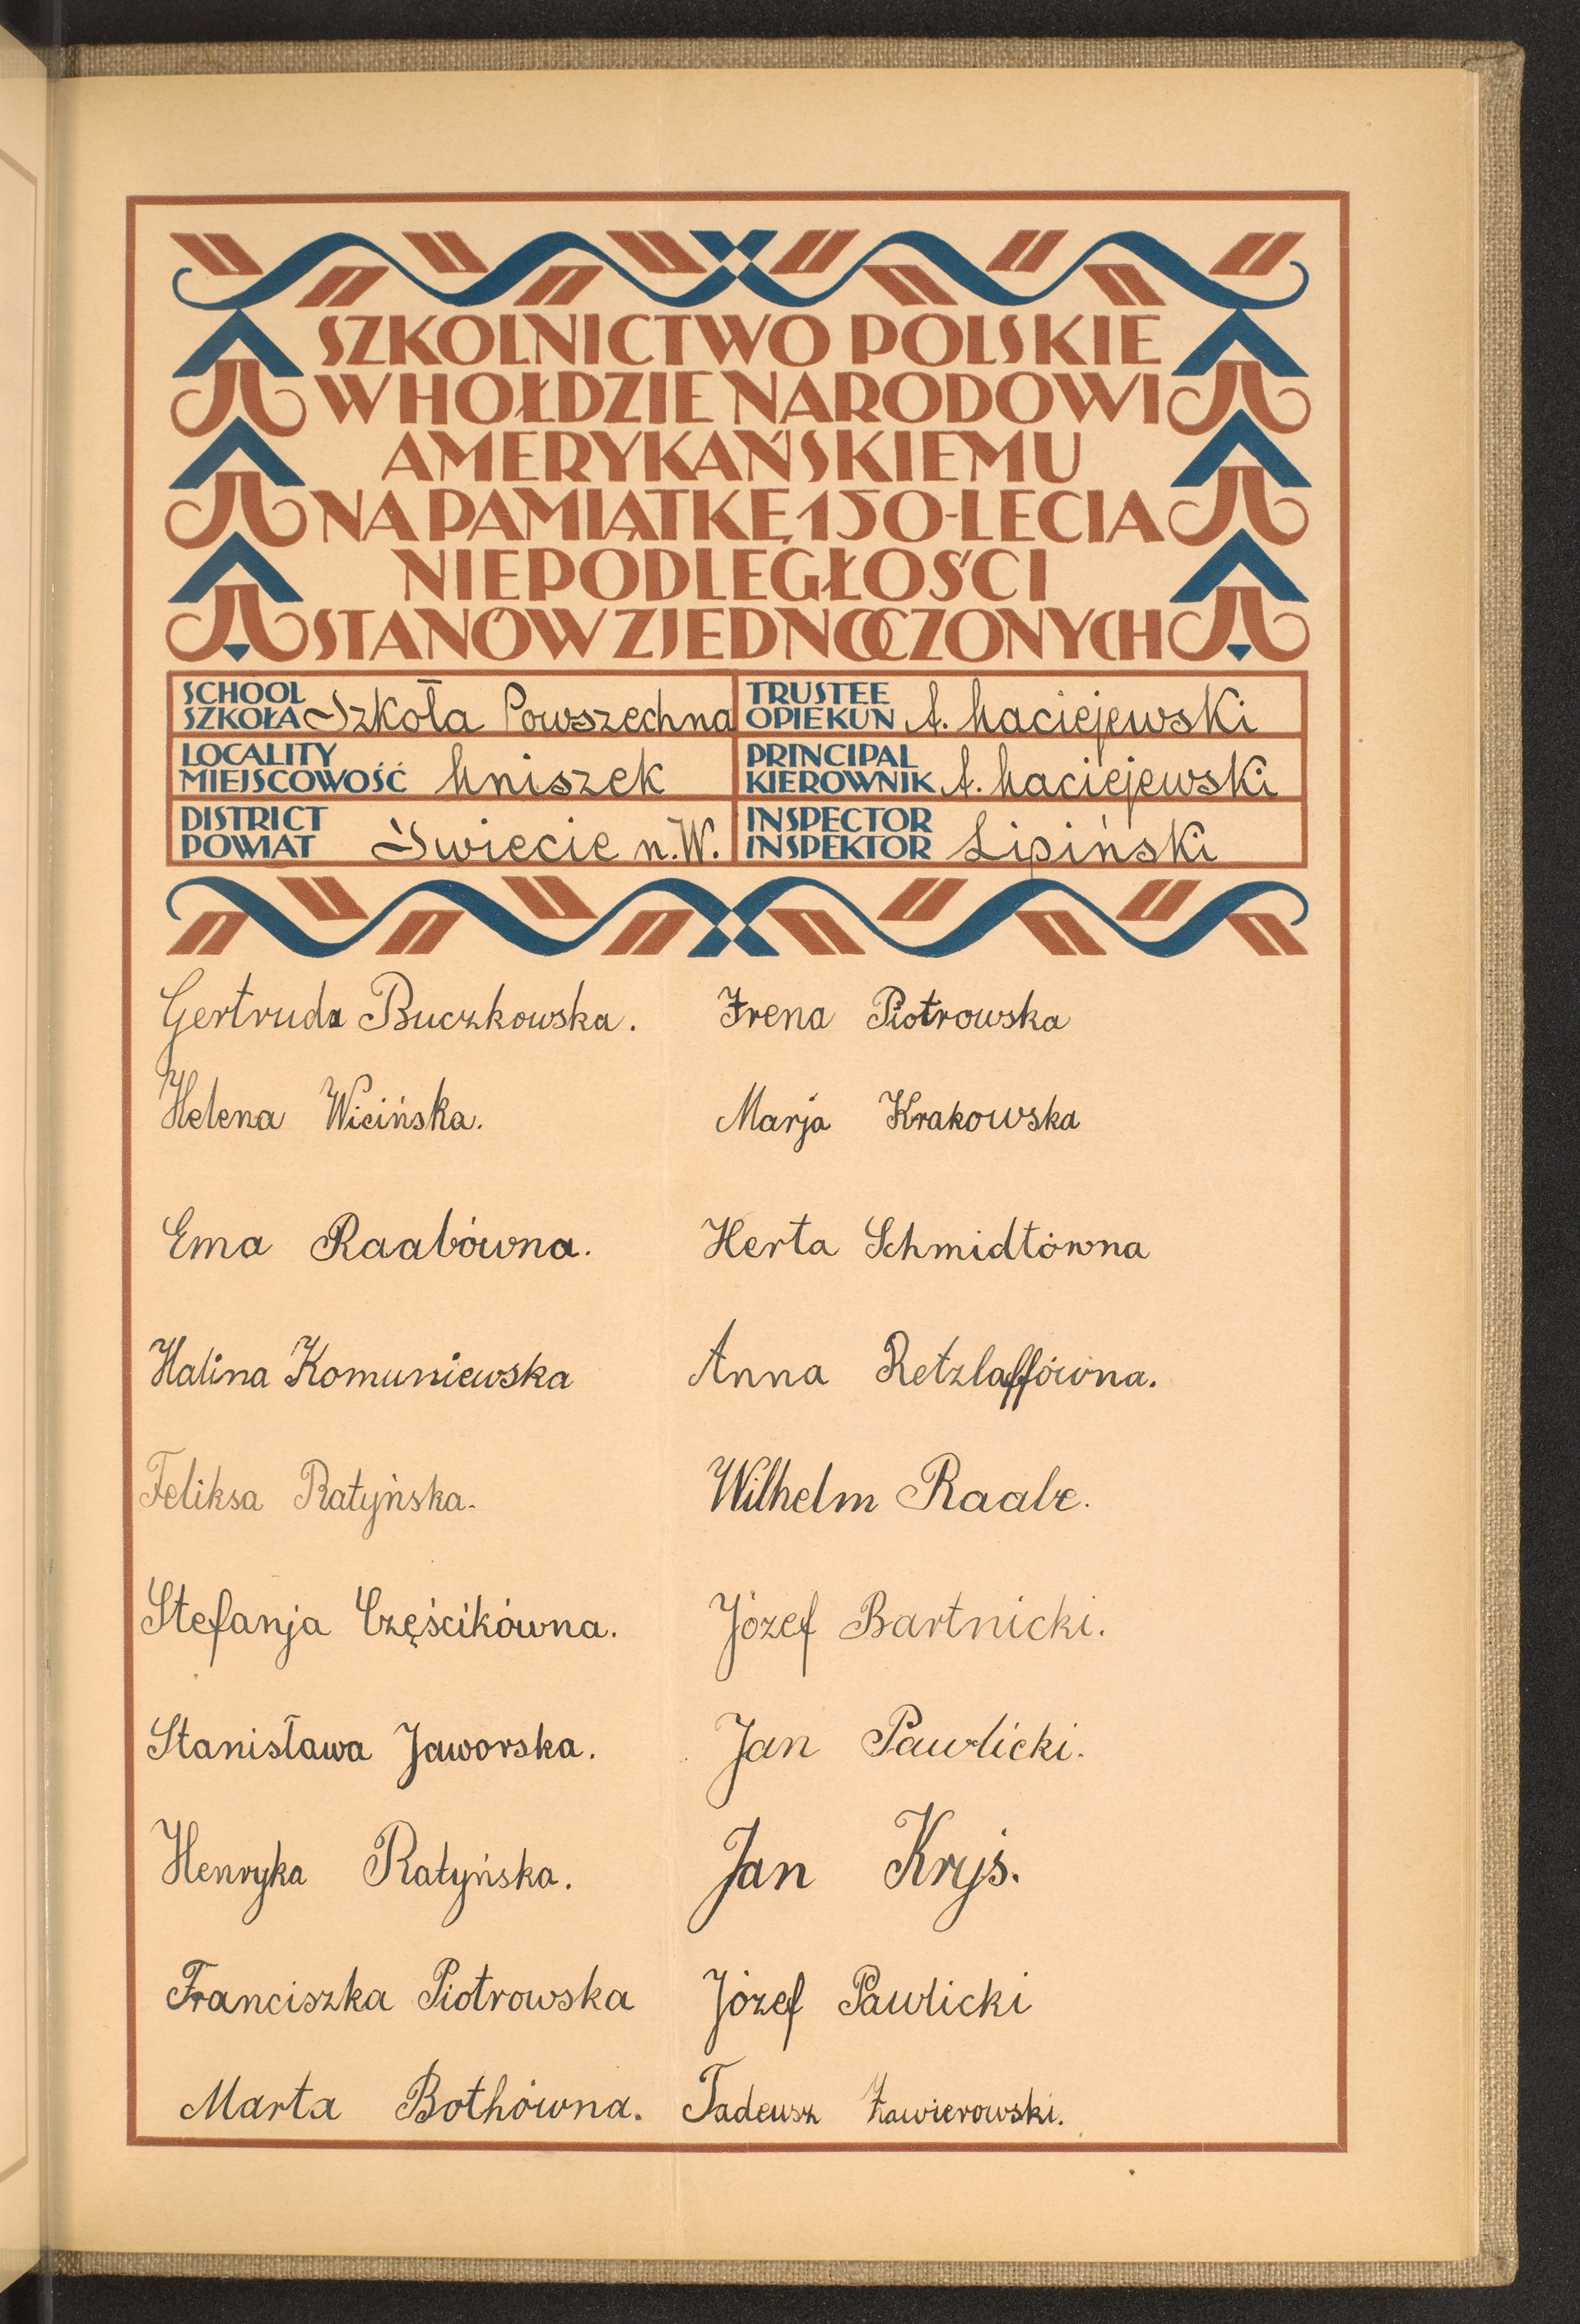 SZKOLNICTWO POLSKIE
W HOŁDZIE NARODOWI
AMERYKAŃSKIEMU
NA PAMIĄTKĘ 150-LECIA
NIEPODLEGŁOŚCI
STANÓW ZJEDNOCZONYCH
SCHOOL
SZKOŁA Szkoła Powszechna
TRUSTEE
OPIEKUN A. Maciejewski
LOCALITY
MIEJSCOWOŚĆ Mniszek
PRINCIPAL
KIEROWNIK A. Maciejewski
DISTRICT
POWIAT Świecie n.W.
INSPECTOR
INSPEKTOR Lipiński
Gertruda Buczkowska.
Helena Wicińska.
Ema Raabówna.
Halina Komuniewska
Feliksa Ratyńska.
Stefanja Częścikówna.
Stanisława Jaworska.
Henryka Ratyńska.
Franciszka Piotrowska
Marta Bothówna.
Irena Piotrowska
Marja Krakowska
Herta Schmidtówna
Anna Retzlaffówna.
Wilhelm Raabe.
Józef Bartnicki.
Jan Pawlicki.
Jan Kryś.
Józef Pawlicki
Tadeusz Zawierowski.